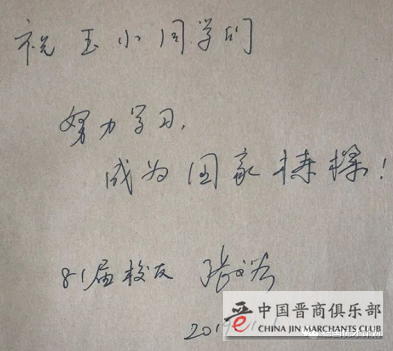 祝玉小同学们
努力学习,
成为国家栋梁!
81届校友 张
201
晋 中国晋商俱乐部
CHINA JIN MARCHANTS CLUB